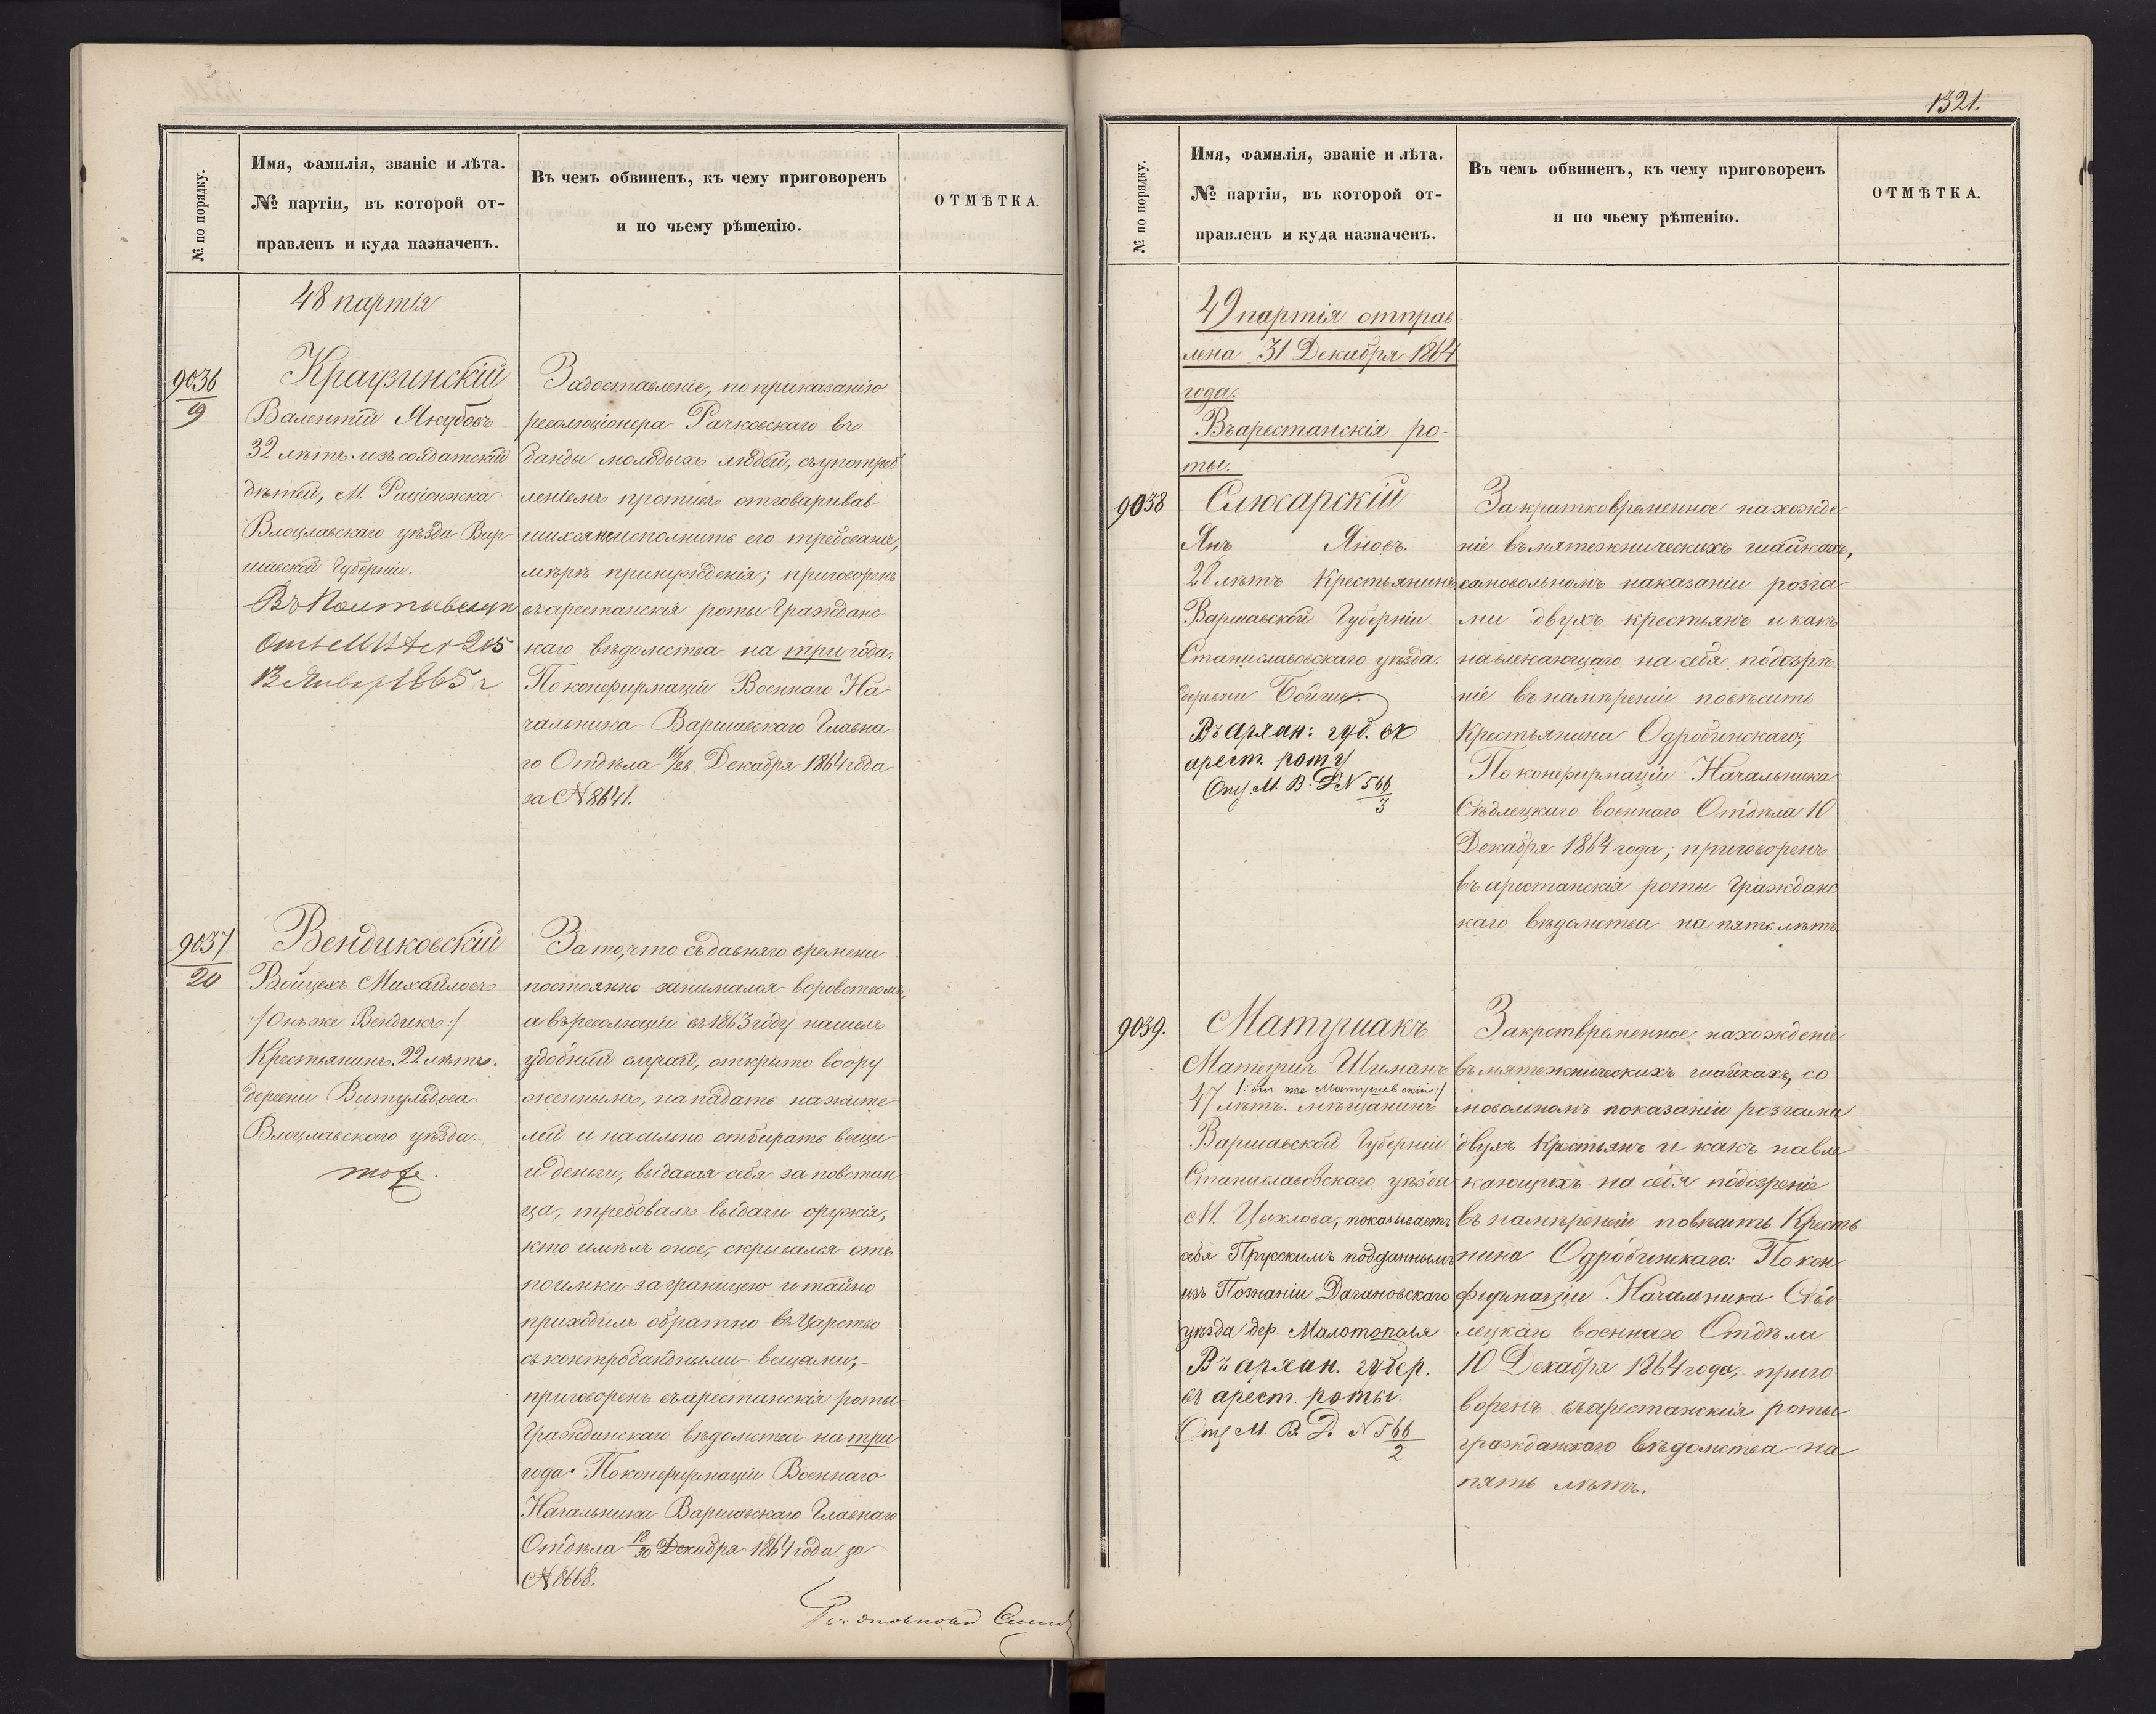 № по порядку.
Имя, фамилія, званіе и лѣта.
№ партіи, въ которой от-
правленъ и куда назначенъ.
Въ чемъ обвиненъ, къ чему приговоренъ
и по чьему рѣшенію.
ОТМѢТКА.
48 партія
9036
9
Краузинскій
Валентій Якубовъ
32 лѣтъ. изъ солдатскихъ
дѣтей, М. Раціонжка
Влоцлавскаго уѣзда Вар
шавской Губерніи.
13 Январ 1865 г
За доставленіе, по приказанію
революціонера Рачковскаго въ
банды молодыхъ людей, съ употреб
леніемъ противъ отговаривав-
шихся неисполнить его требованіе,
мѣръ принужденія; приговоренъ
въ арестанскія роты Гражданс-
каго вѣдомства на три года.
По конфирмаціи Военнаго На
чальника Варшавскаго Главна
го Отдѣла 16/28 Декабря 1864 года
за № 8641.
9037
20
Вендиковскій
Войцехъ Михайловъ
:/Онъ же Вендикъ:/
Крестьянинъ. 22 лѣтъ.
деревни Витульдова
Влоцлавскаго уѣзда.
тоже.
За то, что съ давняго времени
постоянно занимался воровствомъ,
а въ революціи въ 1863 году нашелъ
удобный случай, открыто воору
женнымъ, нападать на жите
лей и насильно отбирать вещи
и деньги, выдавая себя за повстан
ца, требовалъ выдачи оружія,
кто имѣлъ оное, скрывался отъ
поимки заграницею и тайно
приходилъ обратно въ Царство
съ контробандными вещами;-
приговоренъ въ арестанскія роты
Гражданскаго вѣдомства на три
года. По конфирмаціи Военнаго
Начальника Варшавскаго Главнаго
Отдѣла 18/30 Декабря 1864 года за
№ 8668.
1321.
№ по порядку.
Имя, фамилія, званіе и лѣта.
№ партіи, въ которой от-
правленъ и куда назначенъ.
Въ чемъ обвиненъ, къ чему приговоренъ
и по чьему рѣшенію.
ОТМѢТКА.
49 партія отправ-
лена 31 Декабря 1864
года.
Въ арестанскія ро-
ты.
9038
Слюсарскій
Янъ Яновъ.
28 лѣтъ Крестьянинъ
Варшавской Губерніи
Станиславовскаго уѣзда.
деревни
Въ Архан: губ. въ
арест. роту
От. М. В. Д. № 566
3
За кратковременное нахожде
ніе въ мятежническихъ шайкахъ,
самовольномъ наказаніи розга
ми двухъ крестьянъ и какъ
навлекающаго на себя подозрѣ
ніе въ намѣреніи повѣсить
Крестьянина Одробинскаго;
По конфирмаціи Начальника
Сѣдлецкаго военнаго Отдѣла 10
Декабря 1864 года; приговоренъ
въ арестанскія роты Гражданс
каго вѣдомства на пять лѣтъ
9039.
Матушакъ
Матеушъ Шимановъ
/:онъ же Матушевскій:/
47 лѣтъ. мѣщанинъ
Варшавской Губерніи
Станиславовскаго уѣзда
М. Цыхлова, показываетъ
себя Прусскимъ подданнымъ
изъ Познаніи Дагановскаго
уѣзда дер. Малотополя
Въ архан. губер.
въ арест. роты.
От. М. В. Д. № 566
2
За кротвременное нахожденіе
въ мятежническихъ шайкахъ, са
мовольномъ показаніи розгами
двухъ Крестьянъ и какъ навле
кающихъ на себя подозреніе
въ намѣреніи повѣсить Кресть
нина Одробинскаго: По кон
фирмаціи Начальника Сѣд
лецкаго военнаго Отдѣла
10 Декабря 1864 года; приго
воренъ въ арестанскія роты
гражданскаго вѣдомства на
пять лѣтъ.